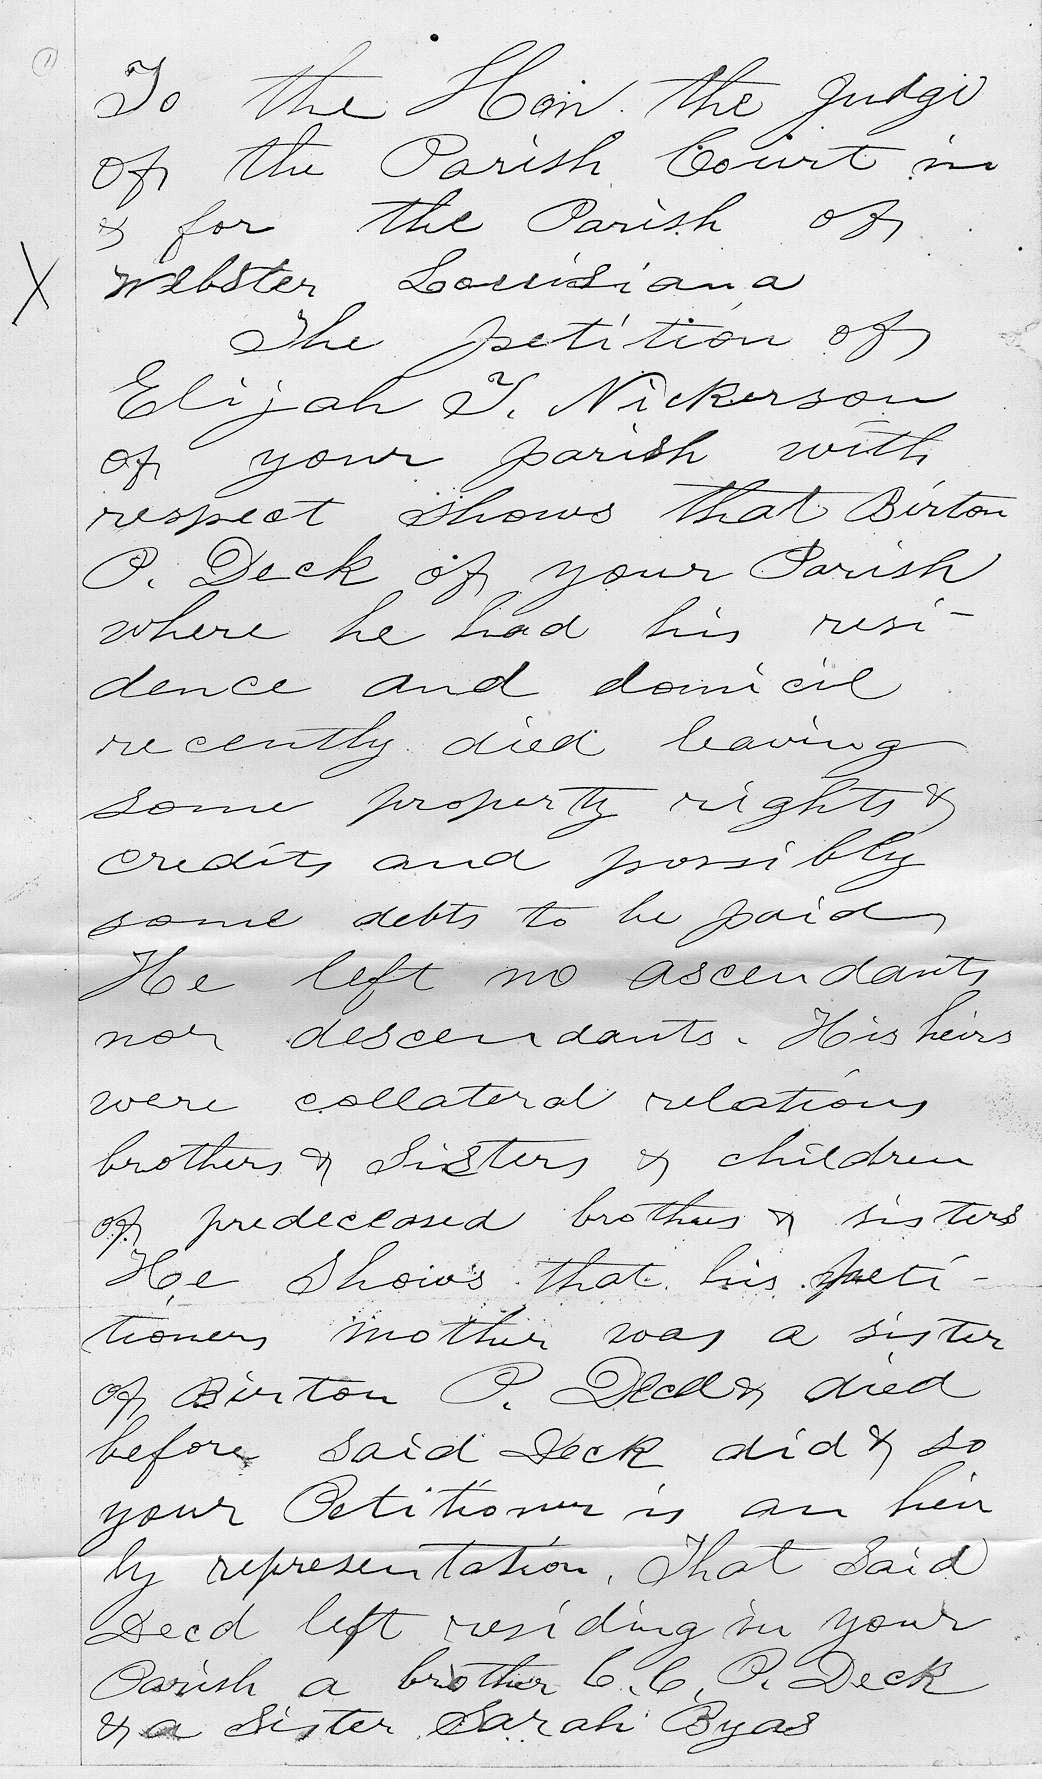 To the Hon. the Judge
of the Parish Court in
& for the Parish of
Webster Louisiana
The petition of
Elijah T. Nickerson
of your parish with
respect shows that Birton
P. Deck of your Parish
where he had his resi-
dence and domicil
recently died leaving
some property rights &
credits and possibly
some debts to be paid,
He left no ascendants
nor descendants. His heirs
were collateral relations
brothers & Sisters & children
of predeceased brothers & sisters
He Shows that his peti-
tioners mother was a sister
of Birton P. Decd & died
before said Deck did & so
your Petitioner is an heir
by representation. That said
Decd left residing in your
Parish a brother C. C. P. Deck
& a Sister Sarah Byas